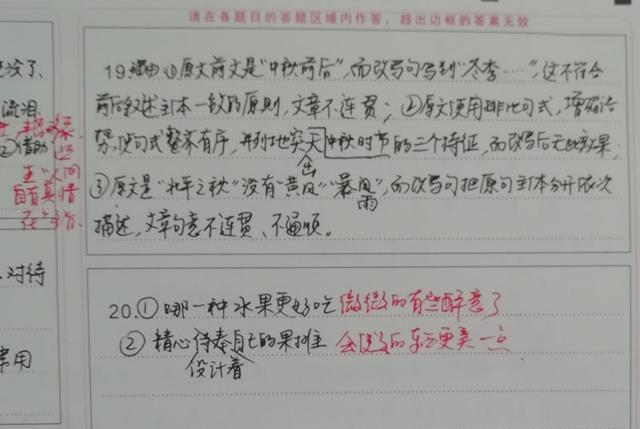 请在各题目的答题区域内作答，超出边框的答案无效
19.理由①原文前文是“中秋前后”,而改写句写到“冬季……”,这不符合
前后叙述主体一致的原则,文章不连贯;②原文使用排比句式,增强语
势,使句式整齐有序,并列地突出中秋时节的三个特征,而改写后无此效果;
③原文是“北平之秋”没有“黄风”“暴雨”,而改写句把原句主体分开依次
描述,文章句意不连贯、不通顺。
20.①哪一种水果更好吃 微微的有些醉意了
②精心侍奉自己的果摊 会
设计着 更美一点
没了、
流泪
②借助
人间
自有真情
在
对待
常用